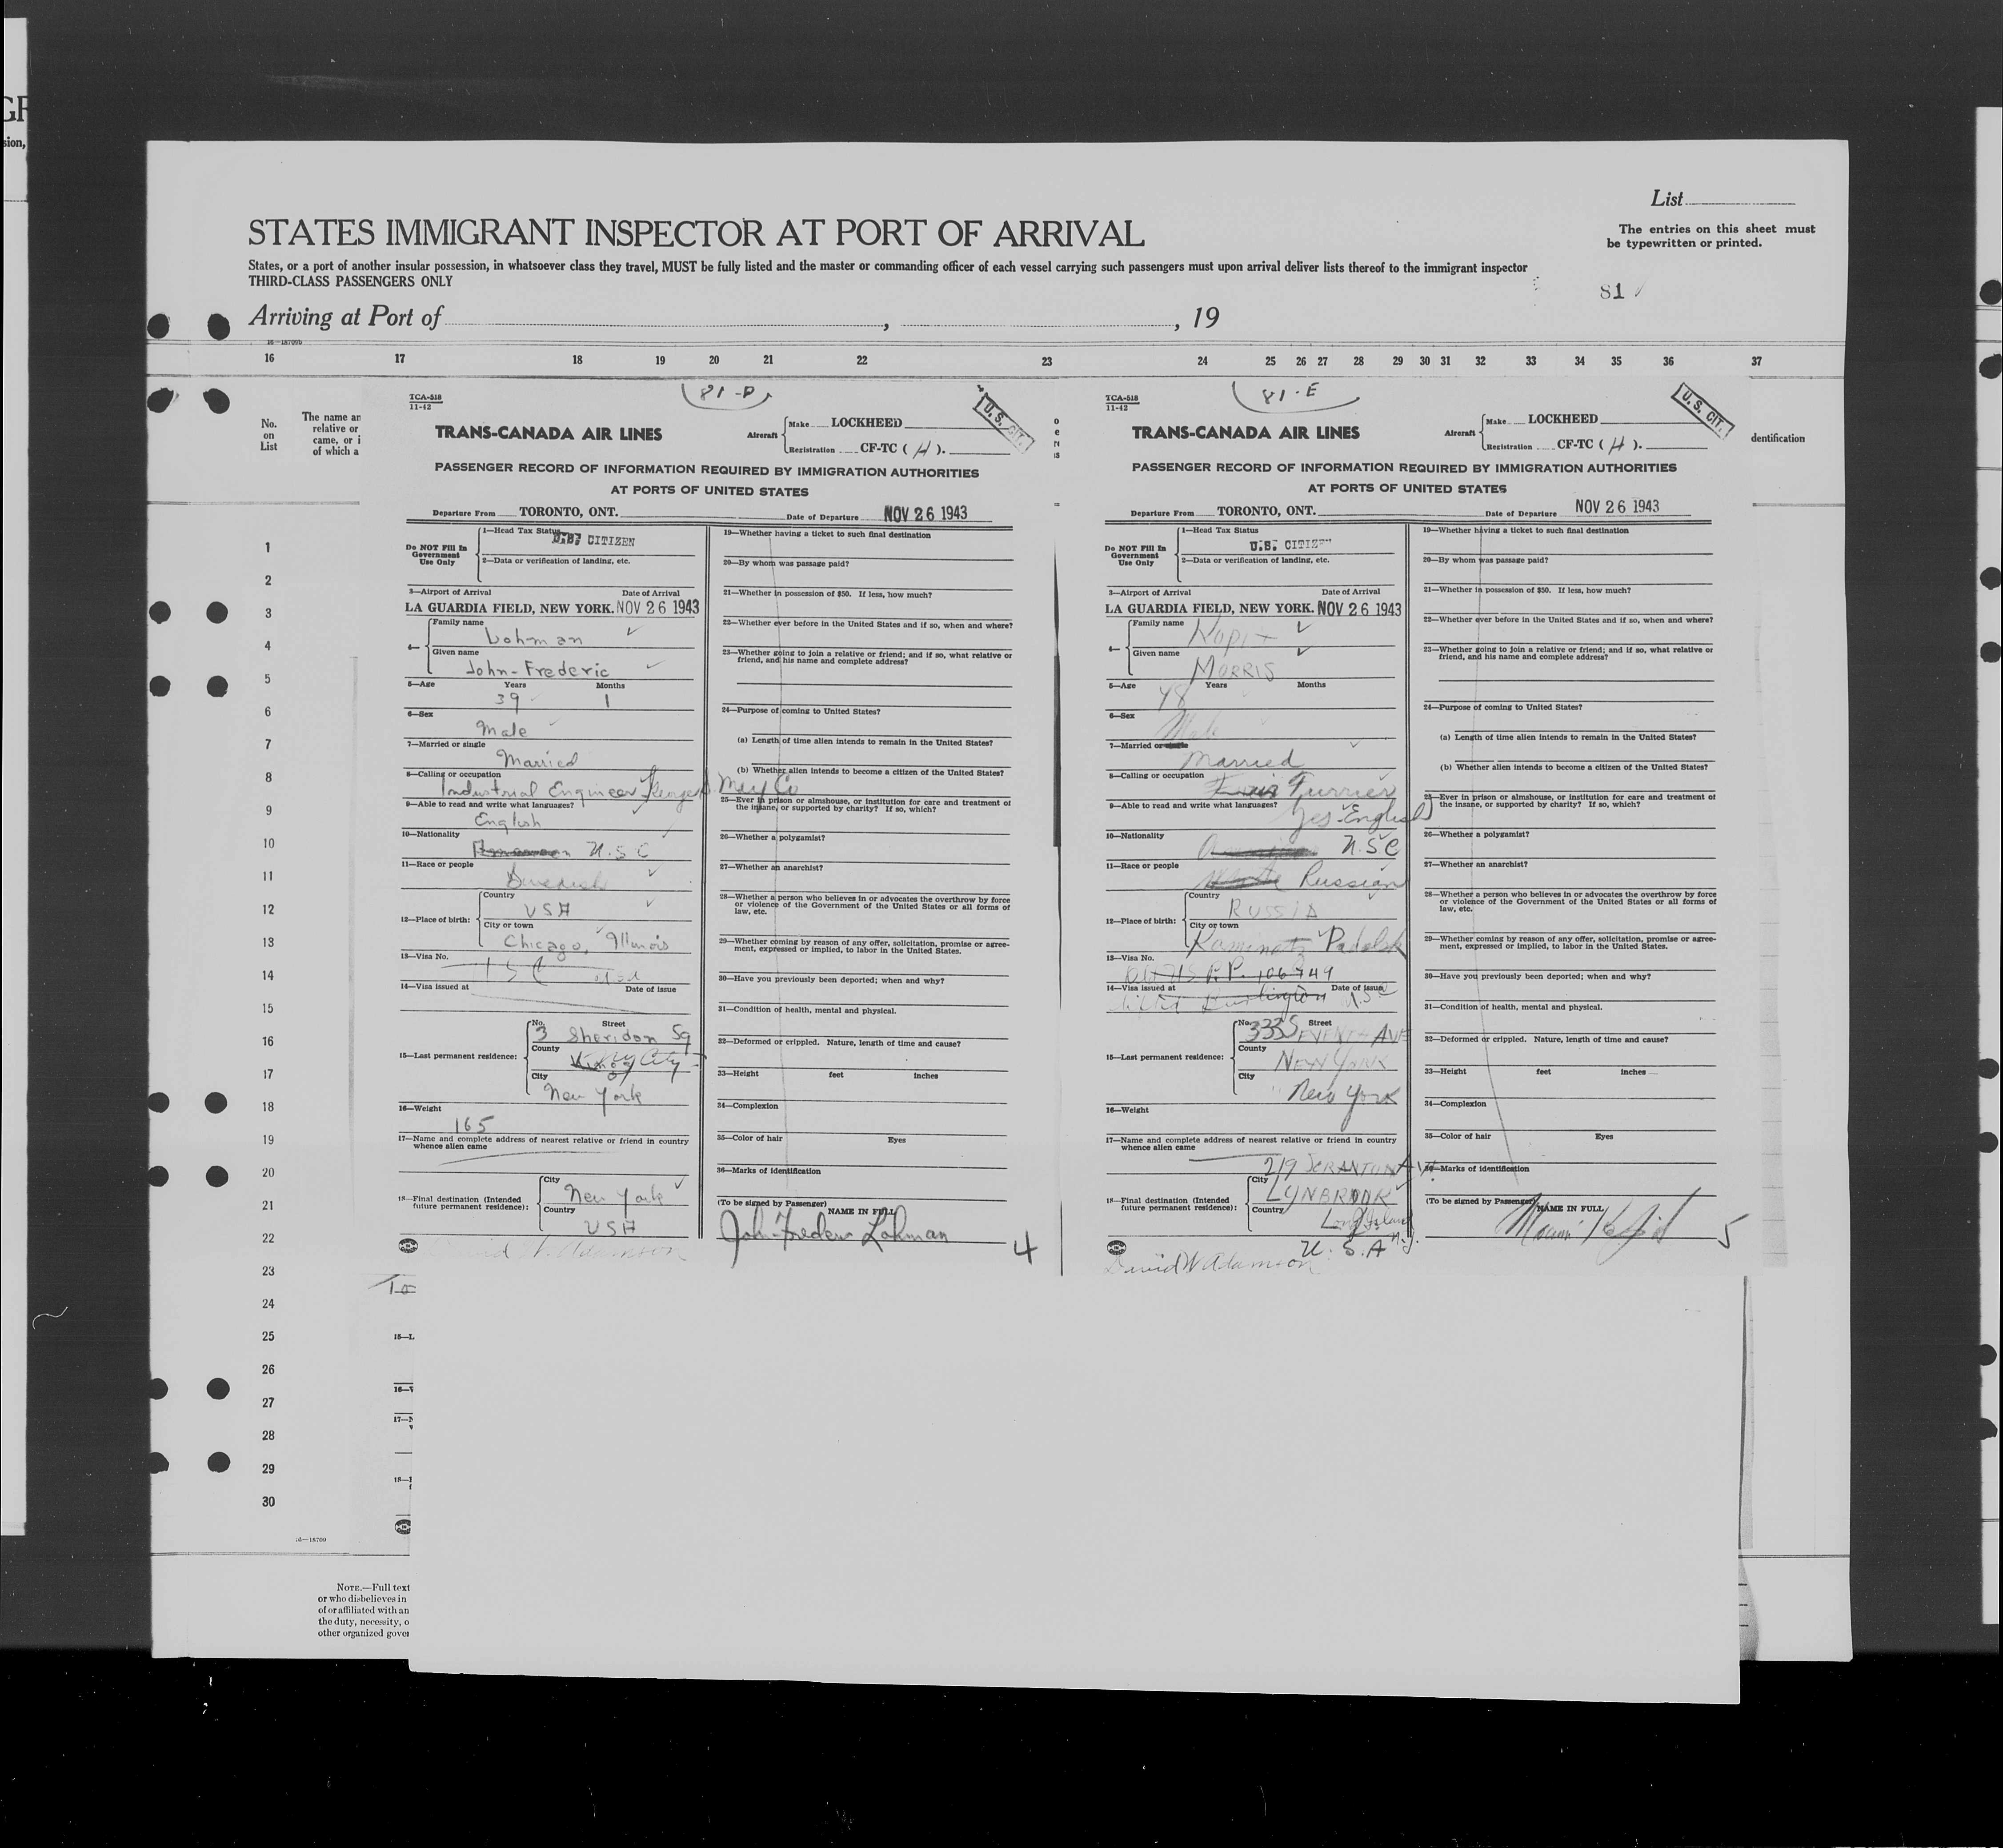 GR
sion,
List
STATES IMMIGRANT INSPECTOR AT PORT OF ARRIVAL
The entries on this sheet must
be typewritten or printed.
States, or a port of another insular possession, in whatsoever class they travel, MUST be fully listed and the master or commanding officer of each vessel carrying such passengers must upon arrival deliver lists thereof to the immigrant inspector
THIRD-CLASS PASSENGERS ONLY
81
Arriving at Port of , , 19
16—18709b
16 17 18 19 20 21 22 23 24 25 26 27 28 29 30 31 32 33 34 35 36 37
No.
on
List
The name an
relative or
came, or i
of which a
dentification
1
2
3
4
5
6
7
8
9
10
11
12
13
14
15
16
17
18
19
20
21
22
23
24
25
26
27
28
29
30
TCA-518
11-42
81-D
U.S. CIT.
TRANS-CANADA AIR LINES
Aircraft
Make LOCKHEED
Registration CF-TC ( H ).
PASSENGER RECORD OF INFORMATION REQUIRED BY IMMIGRATION AUTHORITIES
AT PORTS OF UNITED STATES
Departure From TORONTO, ONT. Date of Departure NOV 26 1943
Do NOT Fill In
Government
Use Only
1—Head Tax Status
U.S. CITIZEN
2—Data or verification of landing, etc.
3—Airport of Arrival Date of Arrival
LA GUARDIA FIELD, NEW YORK. NOV 26 1943
4—
Family name
Lohman
Given name
John-Frederic
5—Age Years Months
39 1
6—Sex
Male
7—Married or single
Married
8—Calling or occupation
Industrial Engineer George S. May Co
9—Able to read and write what languages?
English
10—Nationality
U.S C
11—Race or people
Swedish
12—Place of birth:
Country
USA
City or town
Chicago, Illinois
13—Visa No.
14—Visa issued at Date of issue
15—Last permanent residence:
No. Street
3 Sheridon Sq
County
N.Y. City
City
New York
16—Weight
165
17—Name and complete address of nearest relative or friend in country
whence alien came
18—Final destination (Intended
future permanent residence):
City
New York
Country
USA
David W. Adamson
19—Whether having a ticket to such final destination
20—By whom was passage paid?
21—Whether in possession of $50. If less, how much?
22—Whether ever before in the United States and if so, when and where?
23—Whether going to join a relative or friend; and if so, what relative or
friend, and his name and complete address?
24—Purpose of coming to United States?
(a) Length of time alien intends to remain in the United States?
(b) Whether alien intends to become a citizen of the United States?
25—Ever in prison or almshouse, or institution for care and treatment of
the insane, or supported by charity? If so, which?
26—Whether a polygamist?
27—Whether an anarchist?
28—Whether a person who believes in or advocates the overthrow by force
or violence of the Government of the United States or all forms of
law, etc.
29—Whether coming by reason of any offer, solicitation, promise or agree-
ment, expressed or implied, to labor in the United States.
30—Have you previously been deported; when and why?
31—Condition of health, mental and physical.
32—Deformed or crippled. Nature, length of time and cause?
33—Height feet inches
34—Complexion
35—Color of hair Eyes
36—Marks of identification
(To be signed by Passenger)
NAME IN FULL
John Frederic Lohman
4
TCA-518
11-42
81-E
U.S. CIT.
TRANS-CANADA AIR LINES
Aircraft
Make LOCKHEED
Registration CF-TC ( H ).
PASSENGER RECORD OF INFORMATION REQUIRED BY IMMIGRATION AUTHORITIES
AT PORTS OF UNITED STATES
Departure From TORONTO, ONT. Date of Departure NOV 26 1943
Do NOT Fill In
Government
Use Only
1—Head Tax Status
U.S. CITIZEN
2—Data or verification of landing, etc.
3—Airport of Arrival Date of Arrival
LA GUARDIA FIELD, NEW YORK. NOV 26 1943
4—
Family name
Kapit
Given name
MORRIS
5—Age Years Months
48
6—Sex
Male
7—Married or single
Married
8—Calling or occupation
Furrier
9—Able to read and write what languages?
Yes-English
10—Nationality
U.S C
11—Race or people
Russian
12—Place of birth:
Country
RUSSIA
City or town
Kaminetz Podolsk
13—Visa No.
U.S. P.P. 106749
14—Visa issued at Date of issue
15—Last permanent residence:
No. Street
333 SEVENTH AVE
County
NEW YORK
City
New York
16—Weight
17—Name and complete address of nearest relative or friend in country
whence alien came
219 SCRANTON AV.
18—Final destination (Intended
future permanent residence):
City
LYNBROOK
Country
Long Island
N.Y.
U.S.A
David W Adamson
19—Whether having a ticket to such final destination
20—By whom was passage paid?
21—Whether in possession of $50. If less, how much?
22—Whether ever before in the United States and if so, when and where?
23—Whether going to join a relative or friend; and if so, what relative or
friend, and his name and complete address?
24—Purpose of coming to United States?
(a) Length of time alien intends to remain in the United States?
(b) Whether alien intends to become a citizen of the United States?
25—Ever in prison or almshouse, or institution for care and treatment of
the insane, or supported by charity? If so, which?
26—Whether a polygamist?
27—Whether an anarchist?
28—Whether a person who believes in or advocates the overthrow by force
or violence of the Government of the United States or all forms of
law, etc.
29—Whether coming by reason of any offer, solicitation, promise or agree-
ment, expressed or implied, to labor in the United States.
30—Have you previously been deported; when and why?
31—Condition of health, mental and physical.
32—Deformed or crippled. Nature, length of time and cause?
33—Height feet inches
34—Complexion
35—Color of hair Eyes
36—Marks of identification
(To be signed by Passenger)
NAME IN FULL
5
To
15—L
16—
17—
18—
16—18709
NOTE.—Full text
or who disbelieves in
of or affiliated with an
the duty, necessity, o
other organized gover